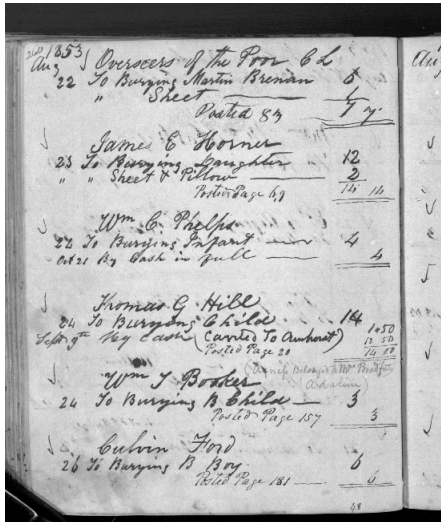 1853 Overseers of the Poor C L
Aug
22 To Burying Martin Brenan 6
" Sheet 1
Posted 83 7 7
James E Horner
23 To Burying Daughter 12
" " Sheet & Pillow 2
Posted Page 69 14 14
Wm C. Phelps
24 To Burying Infant 4
Oct 21 By Cash in full 4
Thomas G Hill
24 To Burying Child 14
Sept 9th By Cash (Carried To Amherst) 10 50
Posted Page 20
14 00
Wm T Booker
24 To Burying B Child 3
Posted Page 157 3
Culvin Ford
26 To Burying B Boy 6
Posted Page 181 6
48
Aug